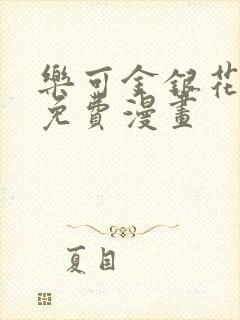 樂可金銀花
免費漫畫
夏目